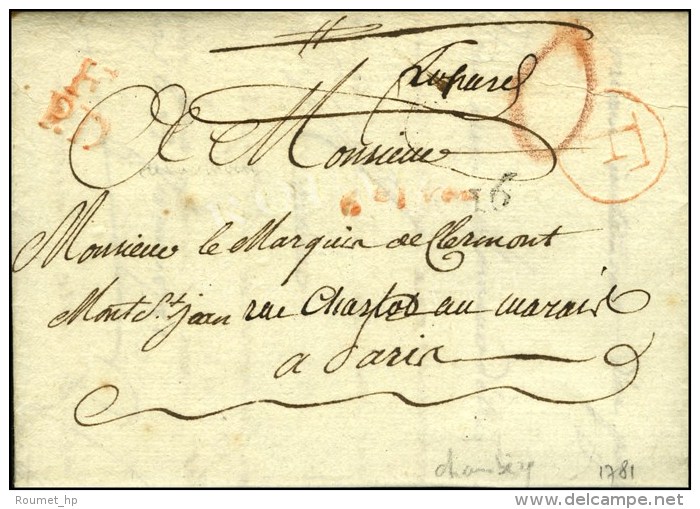 A Monsieur
Monsieur le Marquis de Clermont
Mont St. jean rue Charlot au marais
a Paris
16
L
1781
Roumet_hp
www.delcampe.net